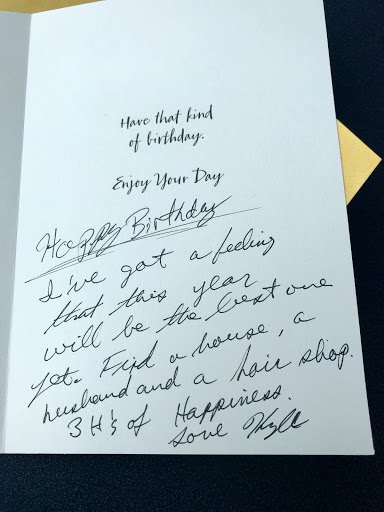 Have that kind
of birthday.
Enjoy Your Day
Happy Birthday
I've got a feeling
that this year
will be the best one
yet. Find a house, a
husband and a hair shop.
3 H's of Happiness.
Love Kyle